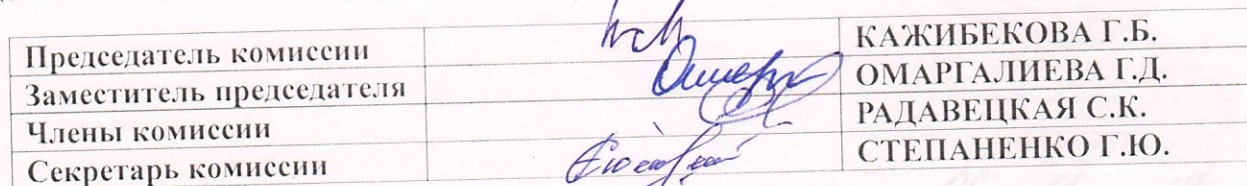 Председатель комиссии КАЖИБЕКОВА Г.Б.
Заместитель председателя ОМАРГАЛИЕВА Г.Д.
Члены комиссии РАДАВЕЦКАЯ С.К.
Секретарь комиссии СТЕПАНЕНКО Г.Ю.